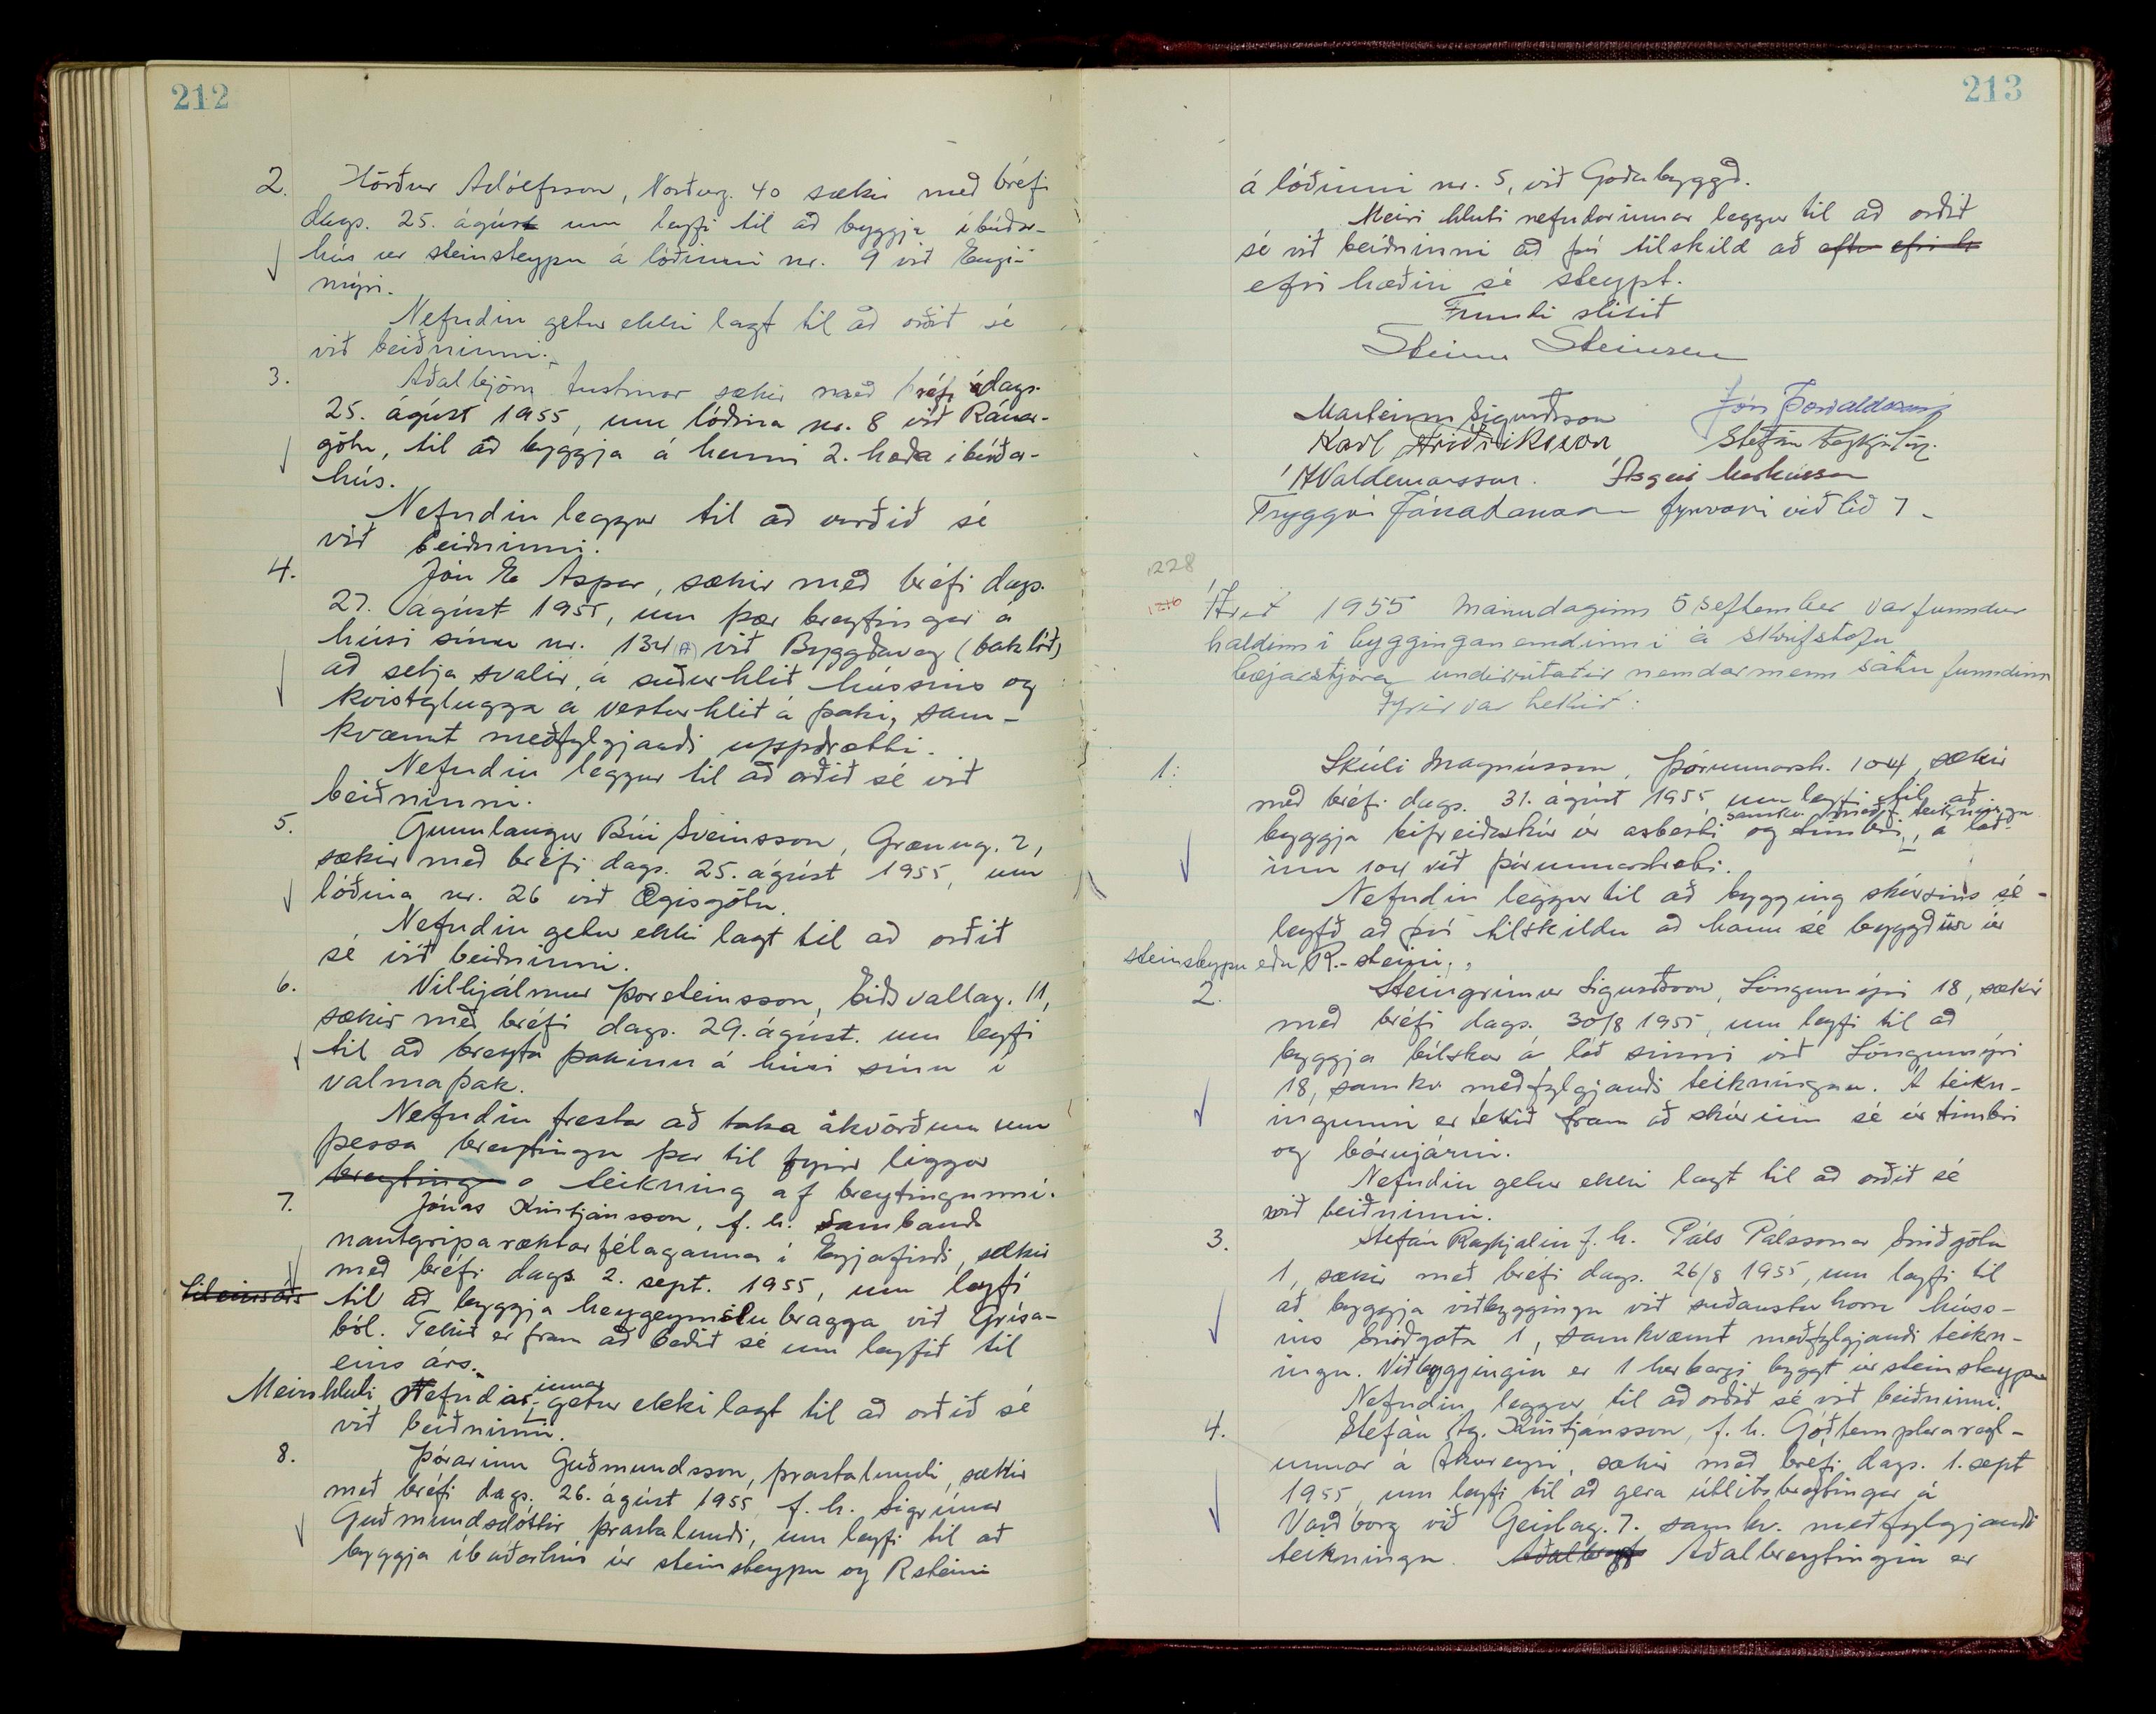 212
2. Hörður Adólfsson, Norðurg. 40 sækir með bréfi
dags. 25. ágúst um leyfi til að byggja íbúðar-
hús úr steinsteypu á lóðinni nr. 9 við Engi-
mýri.
Nefndin getur ekki lagt til að orðið sé
við beiðninni.
3. Aðalbjörn Austmar sækir með bréfi dags.
25. ágúst 1955, um lóðina nr. 8 við Ránar-
götu, til að byggja á henni 2. hæða íbúðar-
hús.
Nefndin leggur til að orðið sé
við beiðninni.
4. Jón E. Aspar, sækir með bréfi dags.
27. ágúst 1955, um þær breytingar á
húsi sínu nr. 134 (A) við Byggðaveg (baklóð)
að setja svalir á suðurhlið hússins og
kvistglugga á vesturhlið á þaki, sam-
kvæmt meðfylgjandi uppdrætti.
Nefndin leggur til að orðið sé við
beiðninni.
5. Gunnlaugur Búi Sveinsson, Grænug. 2,
sækir með bréfi dags. 25. ágúst 1955, um
lóðina nr. 26 við Ægisgötu.
Nefndin getur ekki lagt til að orðið
sé við beiðninni.
6. Vilhjálmur Þorsteinsson, Eiðsvallag. 11,
sækir með bréfi dags. 29. ágúst. um leyfi
til að breyta þakinu á húsi sínu í
valmaþak.
Nefndin frestar að taka ákvörðun um
þessa breytingu þar til fyrir liggur
breyting teikning af breytingunni.
7. Jónas Kristjánsson, f. h. Sambands
nautgriparæktarfélaganna í Eyjafirði, sækir
með bréfi dags 2. sept. 1955, um leyfi
til eins árs til að byggja heygeymslu bragga við Grísa-
ból. Tekið er fram að beðið sé um leyfið til
eins árs.
Meirihluti Nefndar innar getur ekki lagt til að orðið sé
við beiðninni.
8. Þórarinn Guðmundsson, Þrastalundi, sækir
með bréfi dags. 26. ágúst 1955 f. h. Sigrúnar
Guðmundsdóttir Þrastalundi, um leyfi til að
byggja íbúðarhús úr steinsteypu og Rsteini
213
á lóðinni nr. 5, við Goðabyggð.
Meiri hluti nefndarinnar leggur til að orðið
sé við beiðninni að því tilskild að efri h
efri hæðin sé steypt.
Fundi slitið
Steinn Steinsen
Marteinn Sigurðsson Jón Þorvaldsson
Karl Friðriksson Stefán Reykjalín.
Á Valdemarsson. Ásgeir Markússon
Tryggvi Jónatansson fyrvari við lið 7
1228
Árið 1955 Mánudaginn 5 september var funndur
haldinn í bygginganemdinni á skrifstofu
bæjarstjóra undirritaðir nemdarmenn sátu funndinn
Fyrir var tekið:
1: Skúli Magnússon, Þórunnarstr. 104, sækir
með bréfi dags. 31. ágúst 1955 um leyfi til að
samkv. meðf. teikningu
byggja bifreiðaskúr úr asbesti og timbri, á lóð-
inni 104 við Þórunnarstræti.
Nefndin leggur til að bygging skúrsins sé
leyfð að því tilskildu að hann sé byggður úr
steinsteypu eða R-steini.
2. Steingrímur Sigurðsson, Löngumýri 18, sækir
með bréfi dags. 30/8 1955, um leyfi til að
byggja bílskúr á lóð sinni við Löngumýri
18, samkv. meðfylgjandi teikningu. Á teikn-
ingunni er tekið fram að skúrinn sé úr timbri
og bárujárni.
Nefndin getur ekki lagt til að orðið sé
við beiðninni.
3. Stefán Reykjalín f. h. Páls Pálssonar Sniðgötu
1, sækir með bréfi dags. 26/8 1955, um leyfi til
að byggja viðbyggingu við suðaustur horn húss-
ins Sniðgata 1, samkvæmt meðfylgjandi teikn-
ingu. Viðbyggingin er 1 herbergi byggt úr steinsteypu
Nefndin leggur til að orðið sé við beiðninni.
4. Stefán Ág. Kristjánsson, f. h. Góðtemplararegl-
unnar á Akureyri, sækir með bréfi dags. 1. sept
1955, um leyfi til að gera útlitsbreytingar á
Varðborg við Geislag. 7. samkv. meðfylgjandi
teikningu. Aðalbreyt Aðalbreytingin er